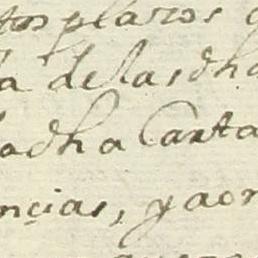 tos plazos
la de las dha
adha Carta
ncias, y aon